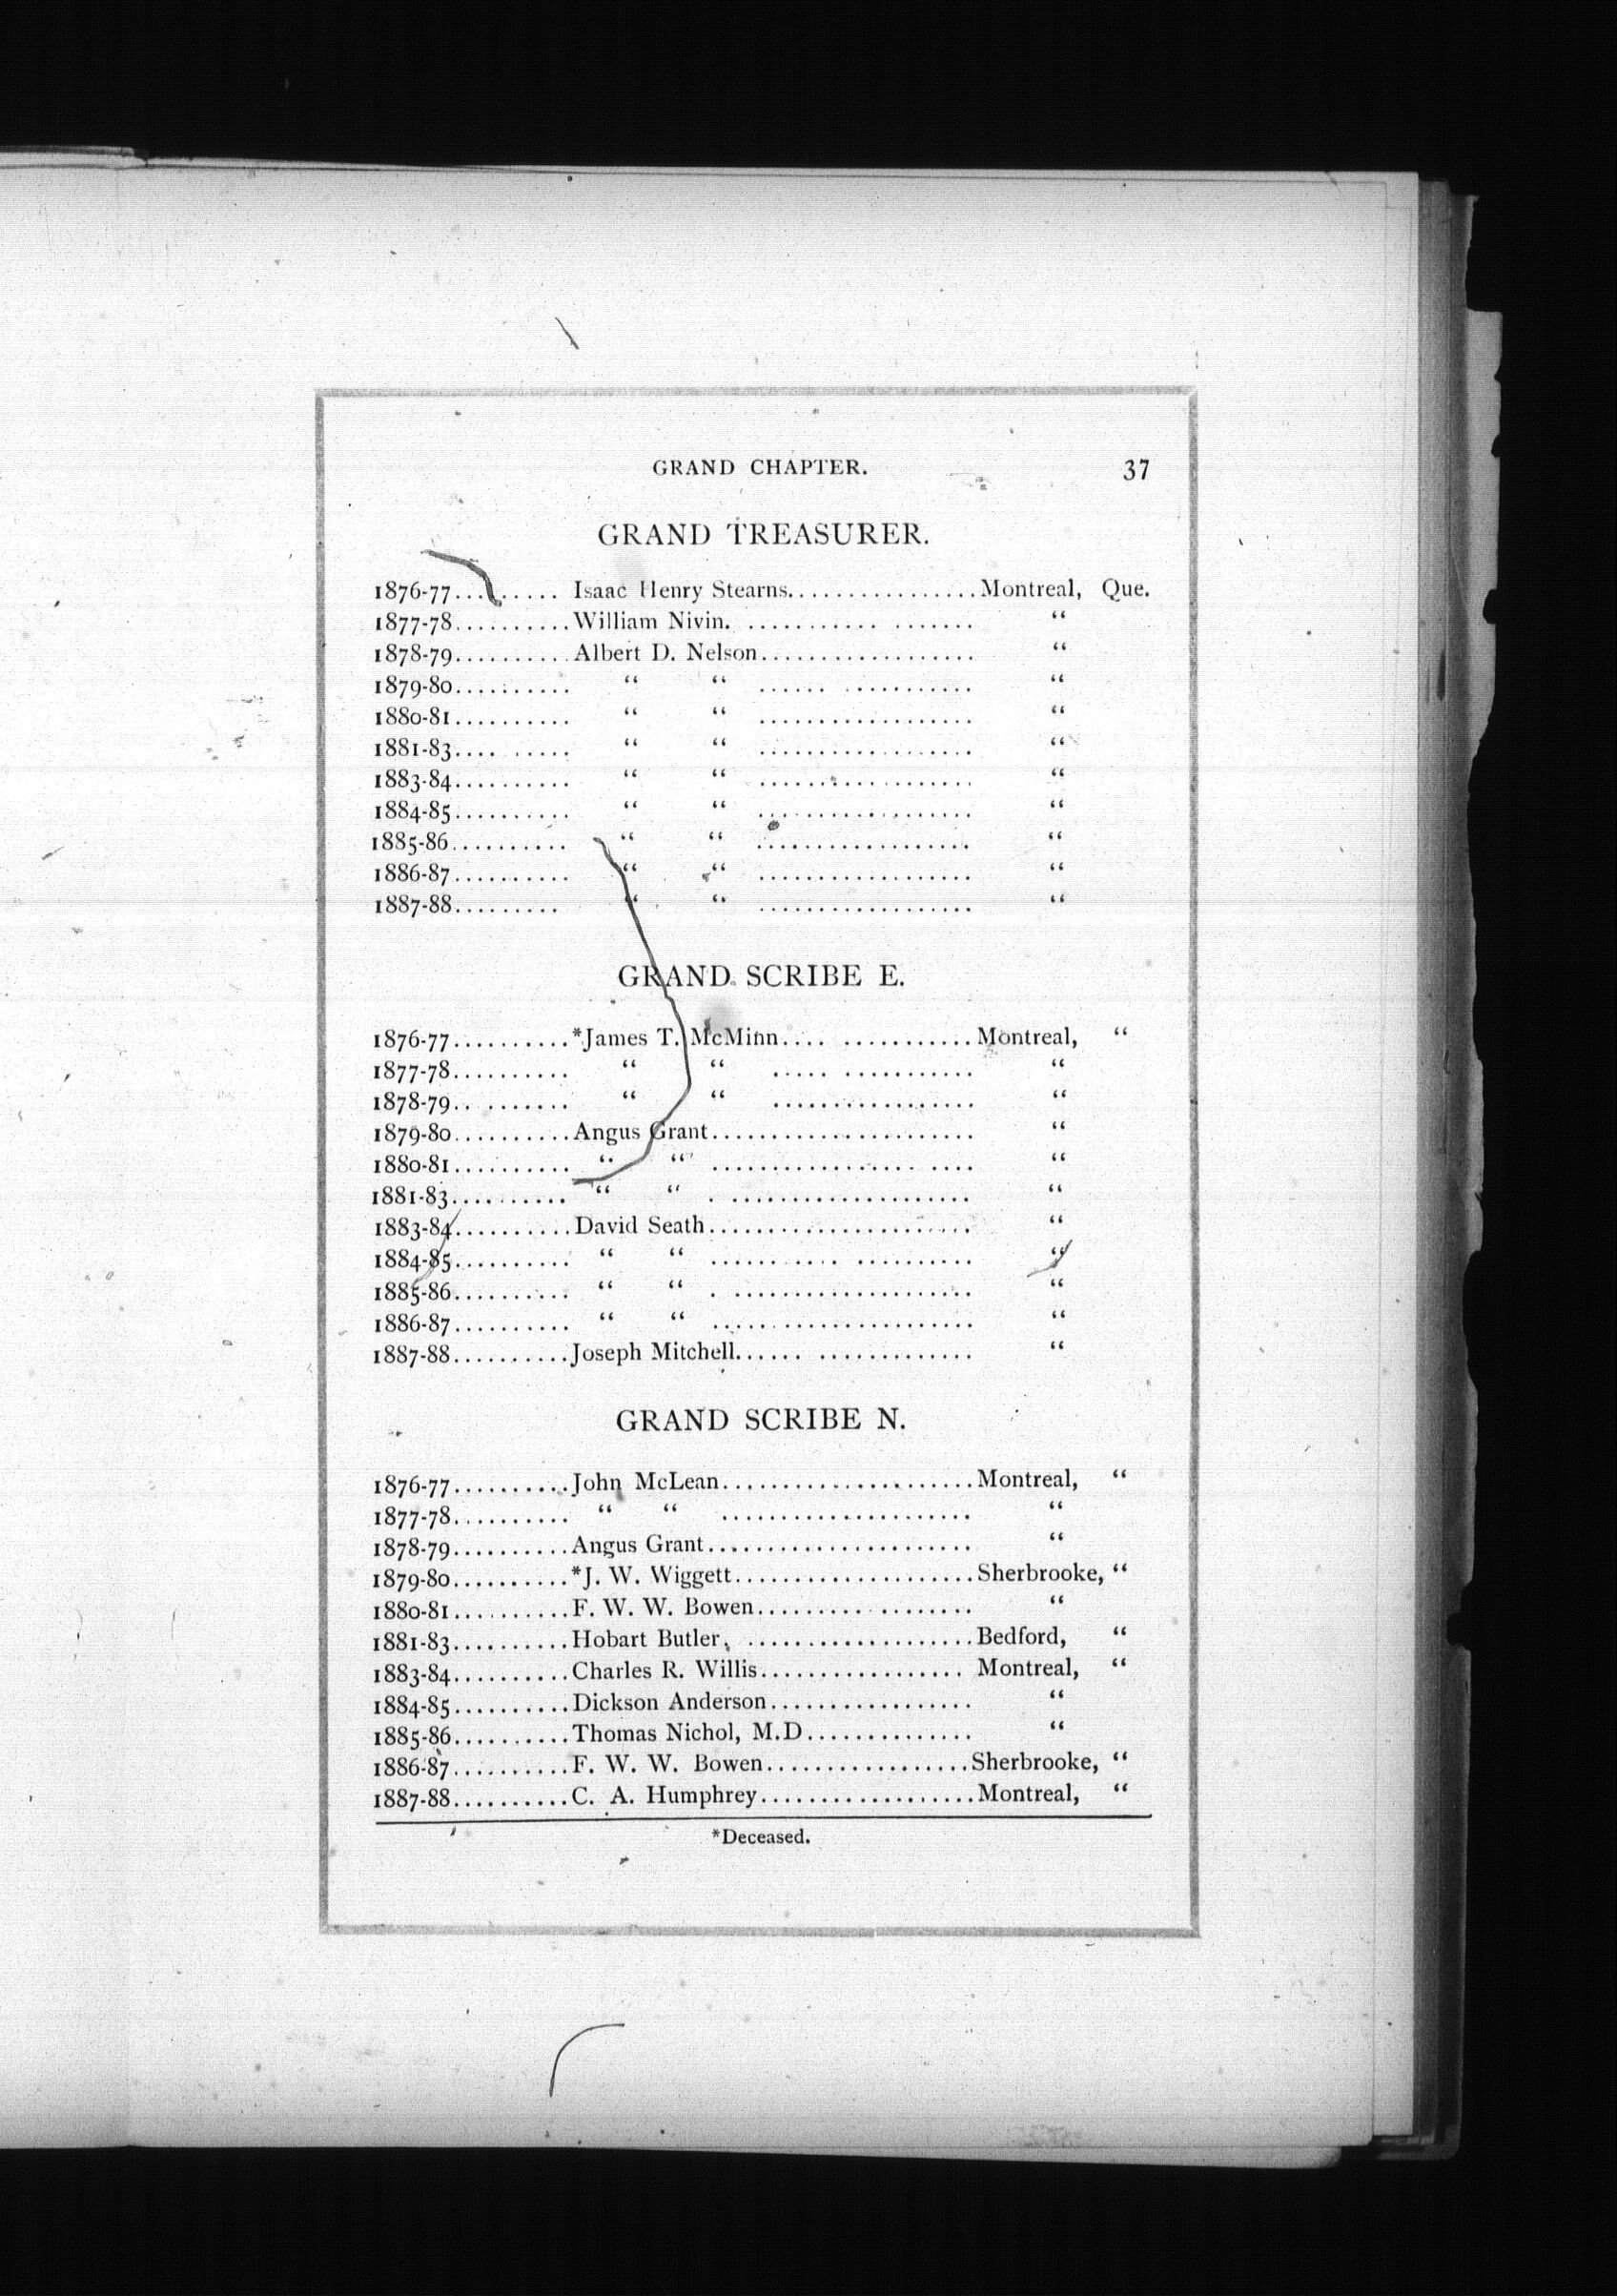 GRAND CHAPTER. 37
GRAND TREASURER.
1876-77.......... Isaac Henry Stearns................Montreal, Que.
1877-78..........William Nivin. ........... ....... “
1878-79..........Albert D. Nelson.................. “
1879-80.......... “ “ ...... ........... “
1880-81.......... “ “ .................. “
1881-83.... ..... “ “ .................. “
1883-84.......... “ “ .................. “
1884-85.......... “ “ .................. “
1885-86.......... “ “ .................. “
1886-87.......... “ “ .................. “
1887-88......... “ “ .................. “
GRAND SCRIBE E.
1876-77..........*James T. McMinn.... ...........Montreal, “
1877-78.......... “ “ ..... ........... “
1878-79.. ....... “ “ ................. “
1879-80..........Angus Grant...................... “
1880-81.......... “ “ ................. .... “
1881-83.......... “ “ . .................... “
1883-84..........David Seath...................... “
1884-85.......... “ “ ........... .......... “
1885-86.......... “ “ . .................... “
1886-87.......... “ “ ...................... “
1887-88..........Joseph Mitchell...... ............. “
GRAND SCRIBE N.
1876-77..........John McLean.....................Montreal, “
1877-78.......... “ “ ..................... “
1878-79..........Angus Grant...................... “
1879-80..........*J. W. Wiggett....................Sherbrooke, “
1880-81..........F. W. W. Bowen.......... ........ “
1881-83..........Hobart Butler. ...................Bedford, “
1883-84..........Charles R. Willis................. Montreal, “
1884-85..........Dickson Anderson................. “
1885-86..........Thomas Nichol, M.D.............. “
1886-87..........F. W. W. Bowen.................Sherbrooke, “
1887-88..........C. A. Humphrey..................Montreal, “
*Deceased.